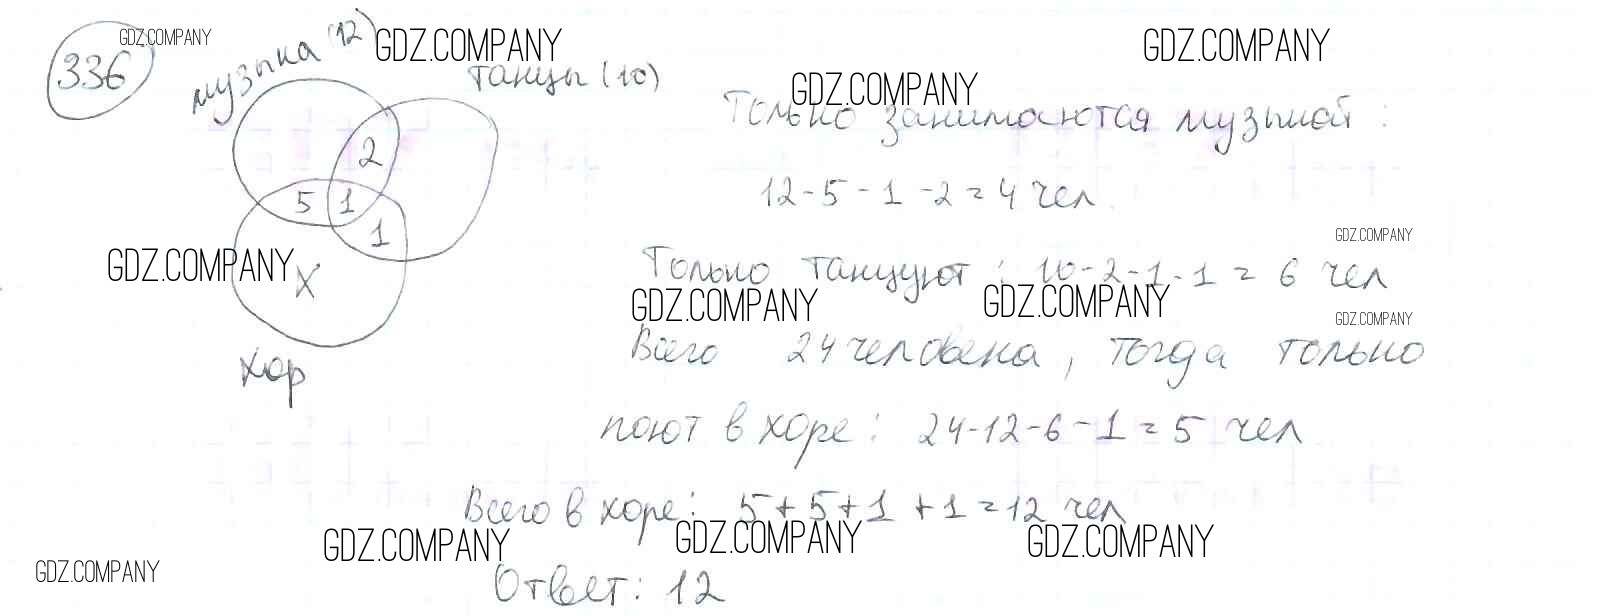 336
GDZ.COMPANY
музыка (12)
GDZ.COMPANY
GDZ.COMPANY
танцы (10)
GDZ.COMPANY
Только занимаются музыкой:
2
12-5-1-2=4 чел.
5 1
1
GDZ.COMPANY
GDZ.COMPANY
Только танцуют: 10-2-1-1=6 чел
X
GDZ.COMPANY
GDZ.COMPANY
GDZ.COMPANY
Всего 24 человека, тогда только
хор
поют в хоре: 24-12-6-1=5 чел
Всего в хоре: 5+5+1+1=12 чел
GDZ.COMPANY
GDZ.COMPANY
GDZ.COMPANY
GDZ.COMPANY
Ответ: 12